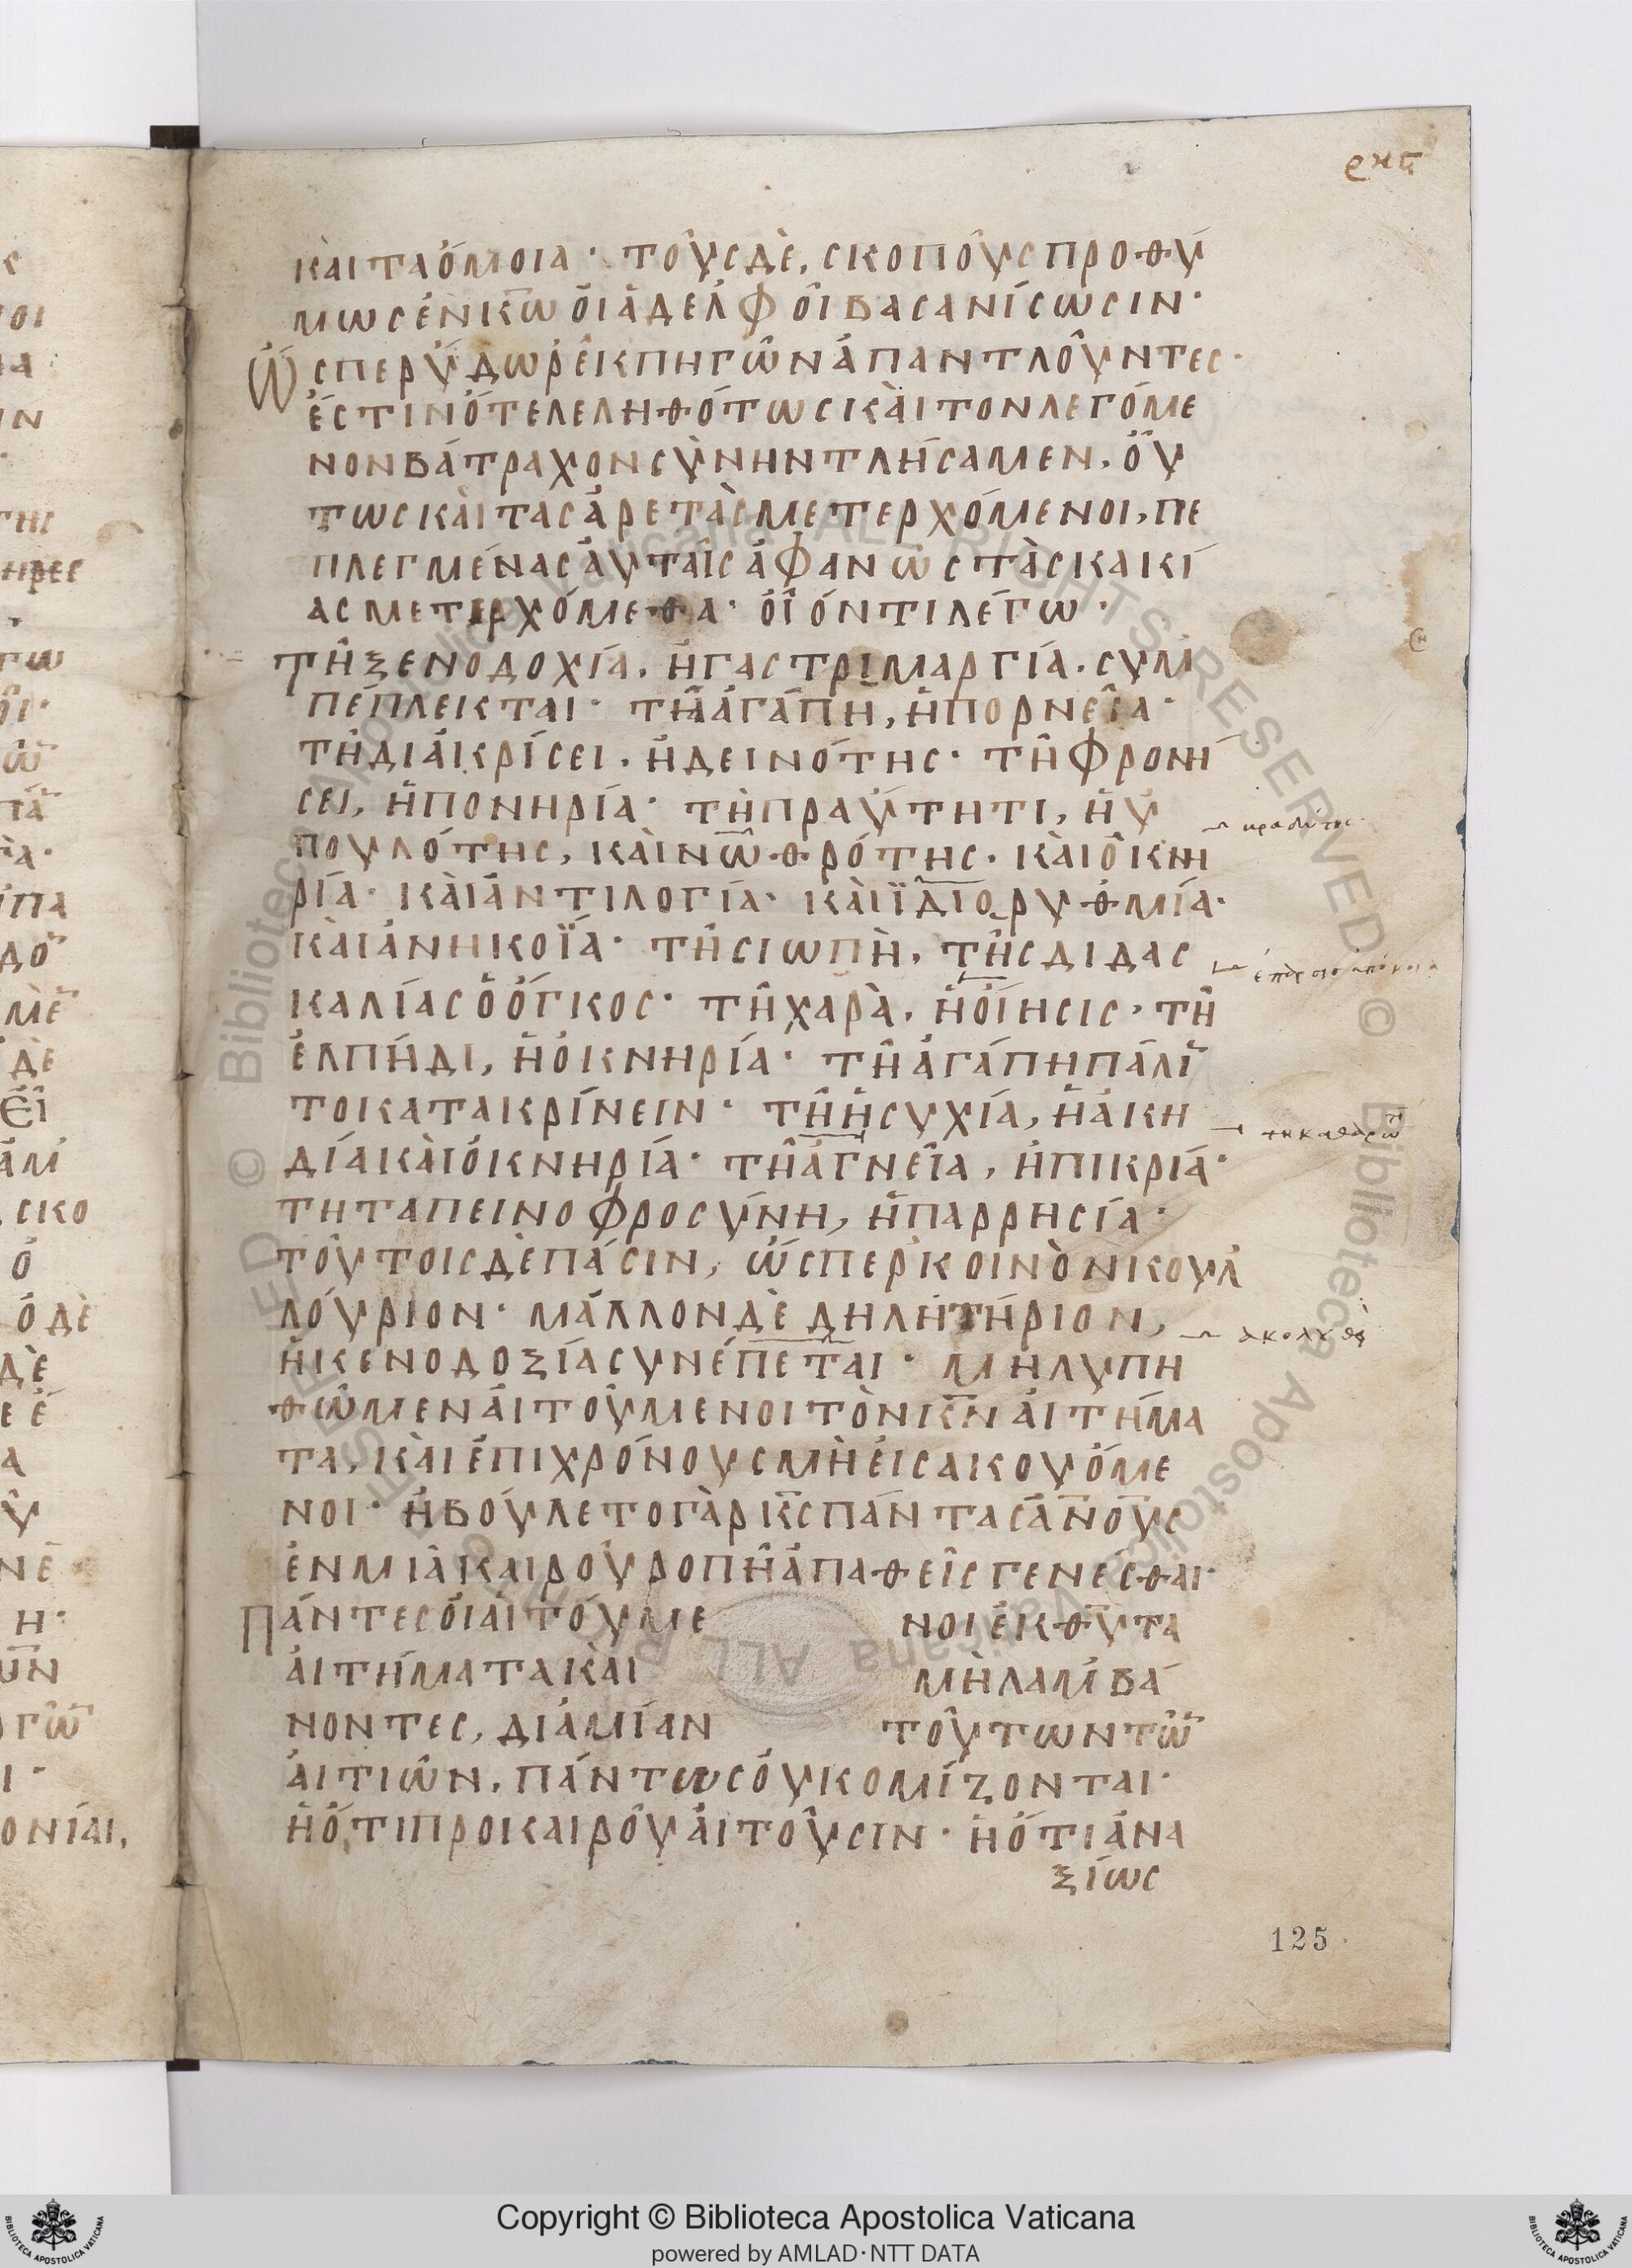 ρκε
ΚᾺΙΤΑὍΜΟΙΑ· ΤΟῪΣΔῈ, ΣΚΟΠΟῪΣΠΡΟΘΎ
ΜΩΣἘΝΚ̅Ω̅ὉΙἈΔΕΛΦΟῚΒΑΣΑΝΊΣΩΣΙΝ·
ὭΣΠΕΡὝΔΩΡἘΚΠΗΓΩ͂ΝἈΠΑΝΤΛΟΥ͂ΝΤΕΣ·
ἜΣΤΙΝὍΤΕΛΕΛΗΘΌΤΩΣΚᾺΙΤΟΝΛΕΓΌΜΕ
ΝΟΝΒΆΤΡΑΧΟΝΣΥΝΗΝΤΛΉΣΑΜΕΝ, ΟὝ
ΤΩΣΚᾺΙΤΑΣἈΡΕΤᾺΣΜΕΤΕΡΧΌΜΕΝΟΙ, ΠΕ
ΠΛΕΓΜΈΝΑΣἈΥΤΑΙ͂ΣἈΦΑΝΩ͂ΣΤᾺΣΚΑΚΊ
ΑΣΜΕΤΕΡΧΌΜΕΘΑ· ὉΙ͂ΌΝΤΙΛΈΓΩ·
ΤΗ͂ΞΕΝΟΔΟΧΊΑ, ἩΓΑΣΤΡΙΜΑΡΓΊΑ, ΣΥΜ
ΠΈΠΛΕΚΤΑΙ· ΤΗ͂ἈΓΆΠΗ, ἩΠΟΡΝΕΊΑ·
ΤΗ͂ΔΙΑΚΡΊΣΕΙ, ἩΔΕΙΝΌΤΗΣ· ΤΗ͂ΦΡΟΝΉ
ΣΕΙ, ἩΠΟΝΗΡΊΑ· ΤΗ͂ΠΡΑΫΤΗΤΙ, ἩὙ
ΠΟΥΛΌΤΗΣ, ΚᾺΙΝΩΘΡΌΤΗΣ· ΚᾺΙὈΚΝΗ
ΡΊΑ· ΚᾺΙἈΝΤΙΛΟΓΊΑ· ΚᾺΙΪΔΙΟΡΥΘΜΊΑ·
ΚᾺΙἈΝΗΚΟΪΑ· ΤΗ͂ΣΙΩΠῊ, ΤΗ͂ΣΔΙΔΑΣ
ΚΑΛΊΑΣὉὌΓΚΟΣ· ΤΗ͂ΧΑΡᾺ, ἩὌΙΗΣΙΣ· ΤΗ͂
ἘΛΠΉΔΙ, ἩὈΚΝΗΡΊΑ· ΤΗ͂ἈΓΆΠΗΠΆΛΙ̅
ΤΟΚΑΤΑΚΡΊΝΕΙΝ· ΤΗ͂ἩΣΥΧΊΑ, ἩἈΚΗ
ΔΊΑΚᾺΙὈΚΝΗΡΊΑ· ΤΗ͂ἈΓΝΕΊΑ, ἩΠΙΚΡΙΆ·
ΤΗΤΑΠΕΙΝΟΦΡΟΣΎΝΗ, ἩΠΑΡΡΗΣΊΑ·
ΤΟΎΤΟΙΣΔῈΠΆΣΙΝ, ὭΣΠΕΡΚΟΙΝῸΝΚΟΥΛ
ΛΟΎΡΙΟΝ· ΜΆΛΛΟΝΔῈΔΗΛΗΤΉΡΙΟΝ,
ἩΚΕΝΟΔΟΞΊΑΣΥΝΈΠΕΤΑΙ· ΜΗΛΥΠΗ
ΘΩ͂ΜΕΝἈΙΤΟΎΜΕΝΟΙΤῸΝΚ̅Ν̅ἈΙΤΉΜΑ
ΤΑ, ΚᾺΙἘΠΙΧΡΌΝΟΥΣΜῊἘΙΣΑΚΟΥΌΜΕ
ΝΟΙ· ἨΒΟΎΛΕΤΟΓᾺΡΚ̅Σ̅ΠΆΝΤΑΣἈ̅Ν̅Ο̅Υ̅Σ̅
ἘΝΜΙᾺΚΑΙΡΟΥ͂ΡΟΠΗ͂ἈΠΑΘΕΙ͂ΣΓΕΝΈΣΘΑΙ·
ΠΆΝΤΕΣὉΙἈΙΤΟΎΜΕ ΝΟΙἘΚΘ̅Υ̅ΤΑ
ἈΙΤΉΜΑΤΑΚᾺΙ ΜῊΛΑΜΒΆ
ΝΟΝΤΕΣ, ΔΙΑΜΊΑΝ ΤΟΎΤΩΝΤΩ̅
ἈΙΤΙΩ͂Ν, ΠΆΝΤΩΣΟὐΚΟΜΊΖΟΝΤΑΙ·
ἪὍΤΙΠΡΟΚΑΙΡΟΥ͂ἈΙΤΟΥ͂ΣΙΝ· ἪὍΤΙἈΝΑ
ΞΊΩΣ
125
Copyright © Biblioteca Apostolica Vaticana
powered by AMLAD·NTT DATA